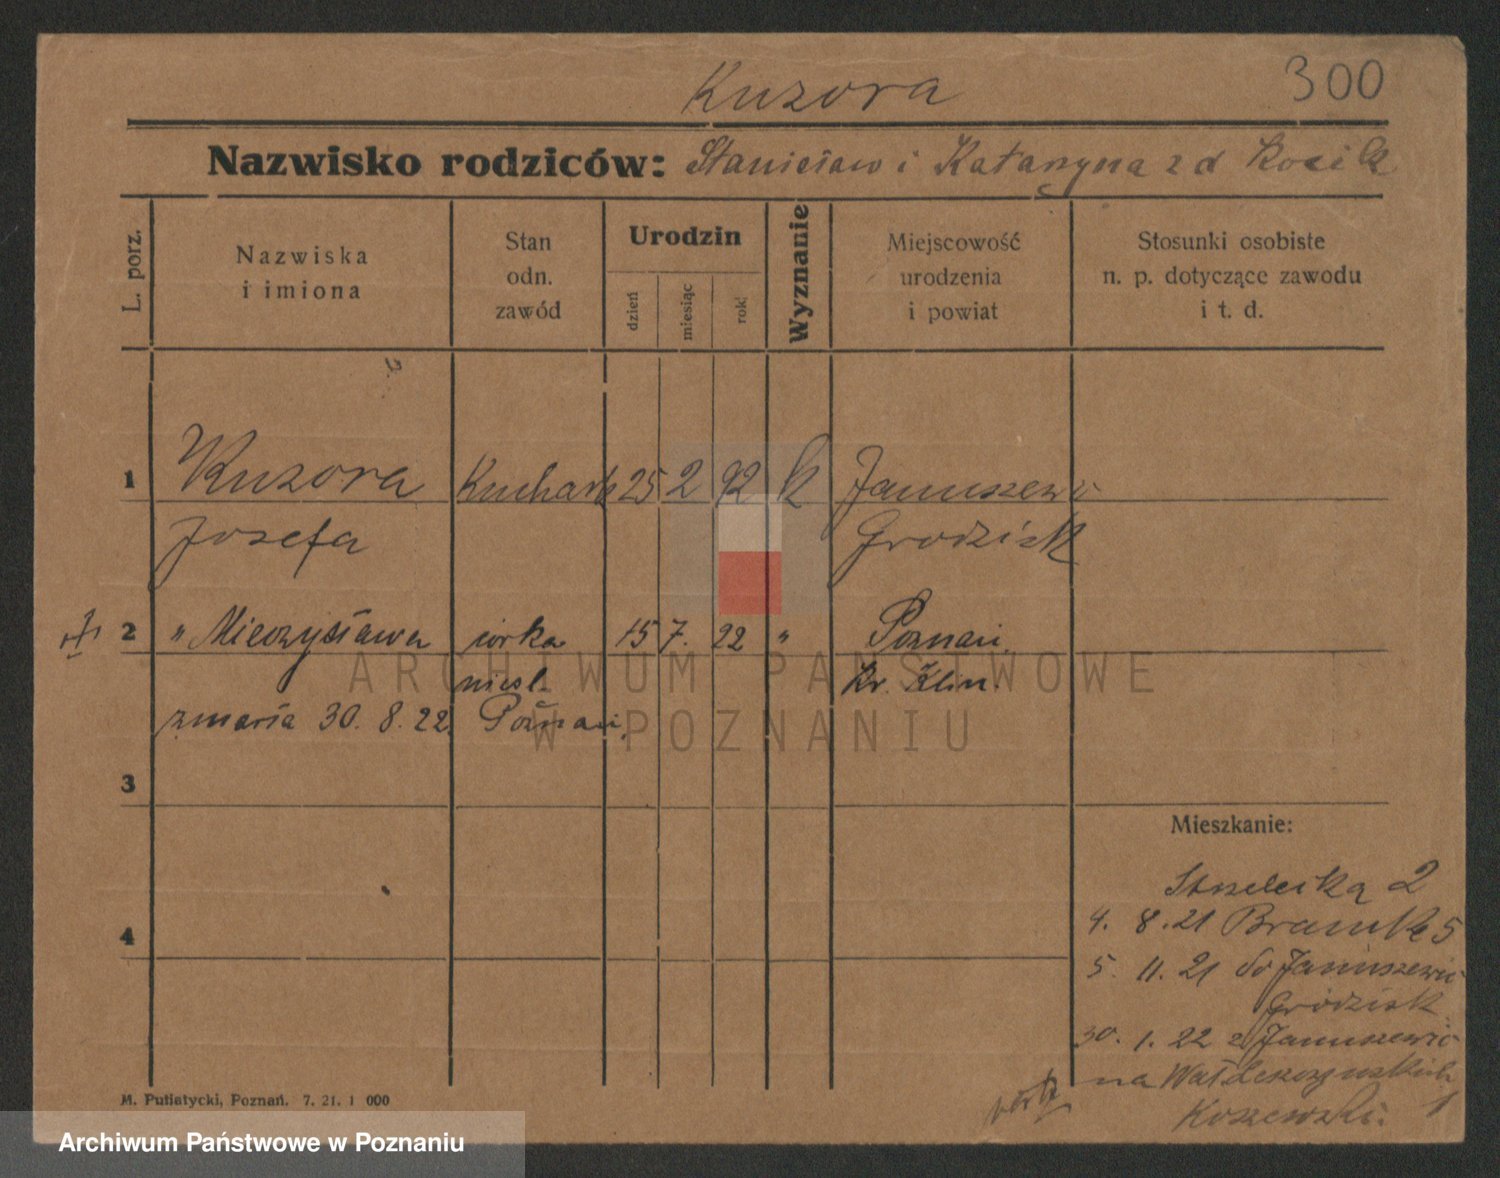 Kuzora 300
Nazwisko rodziców: Stanisław i Katarzyna z d Kocik
L. porz.
Nazwiska
i imiona
Stan
odn.
zawód
Urodzin
dzień
miesiąc
rok
Wyznanie
Miejscowość
urodzenia
i powiat
Stosunki osobiste
n. p. dotyczące zawodu
i t. d.
1 Kuzora Kuchark 25 2 92 k Januszewo
Josefa Grodzisk
2 " Mieczysława córka 15 7. 22 " Poznań
niesl. Kr. Klin.
zmarła 30. 8. 22. Poznań.
3
Mieszkanie:
Strzelecka 2
4. 8. 21 5
4
5. 11. 21 do
Grodzisk
30. 1. 22 z
na Wał Leszczyńskich 1
Koszewski
M. Putiatycki, Poznań. 7. 21. 1 000
ARCHIWUM PAŃSTWOWE
W POZNANIU
Archiwum Państwowe w Poznaniu